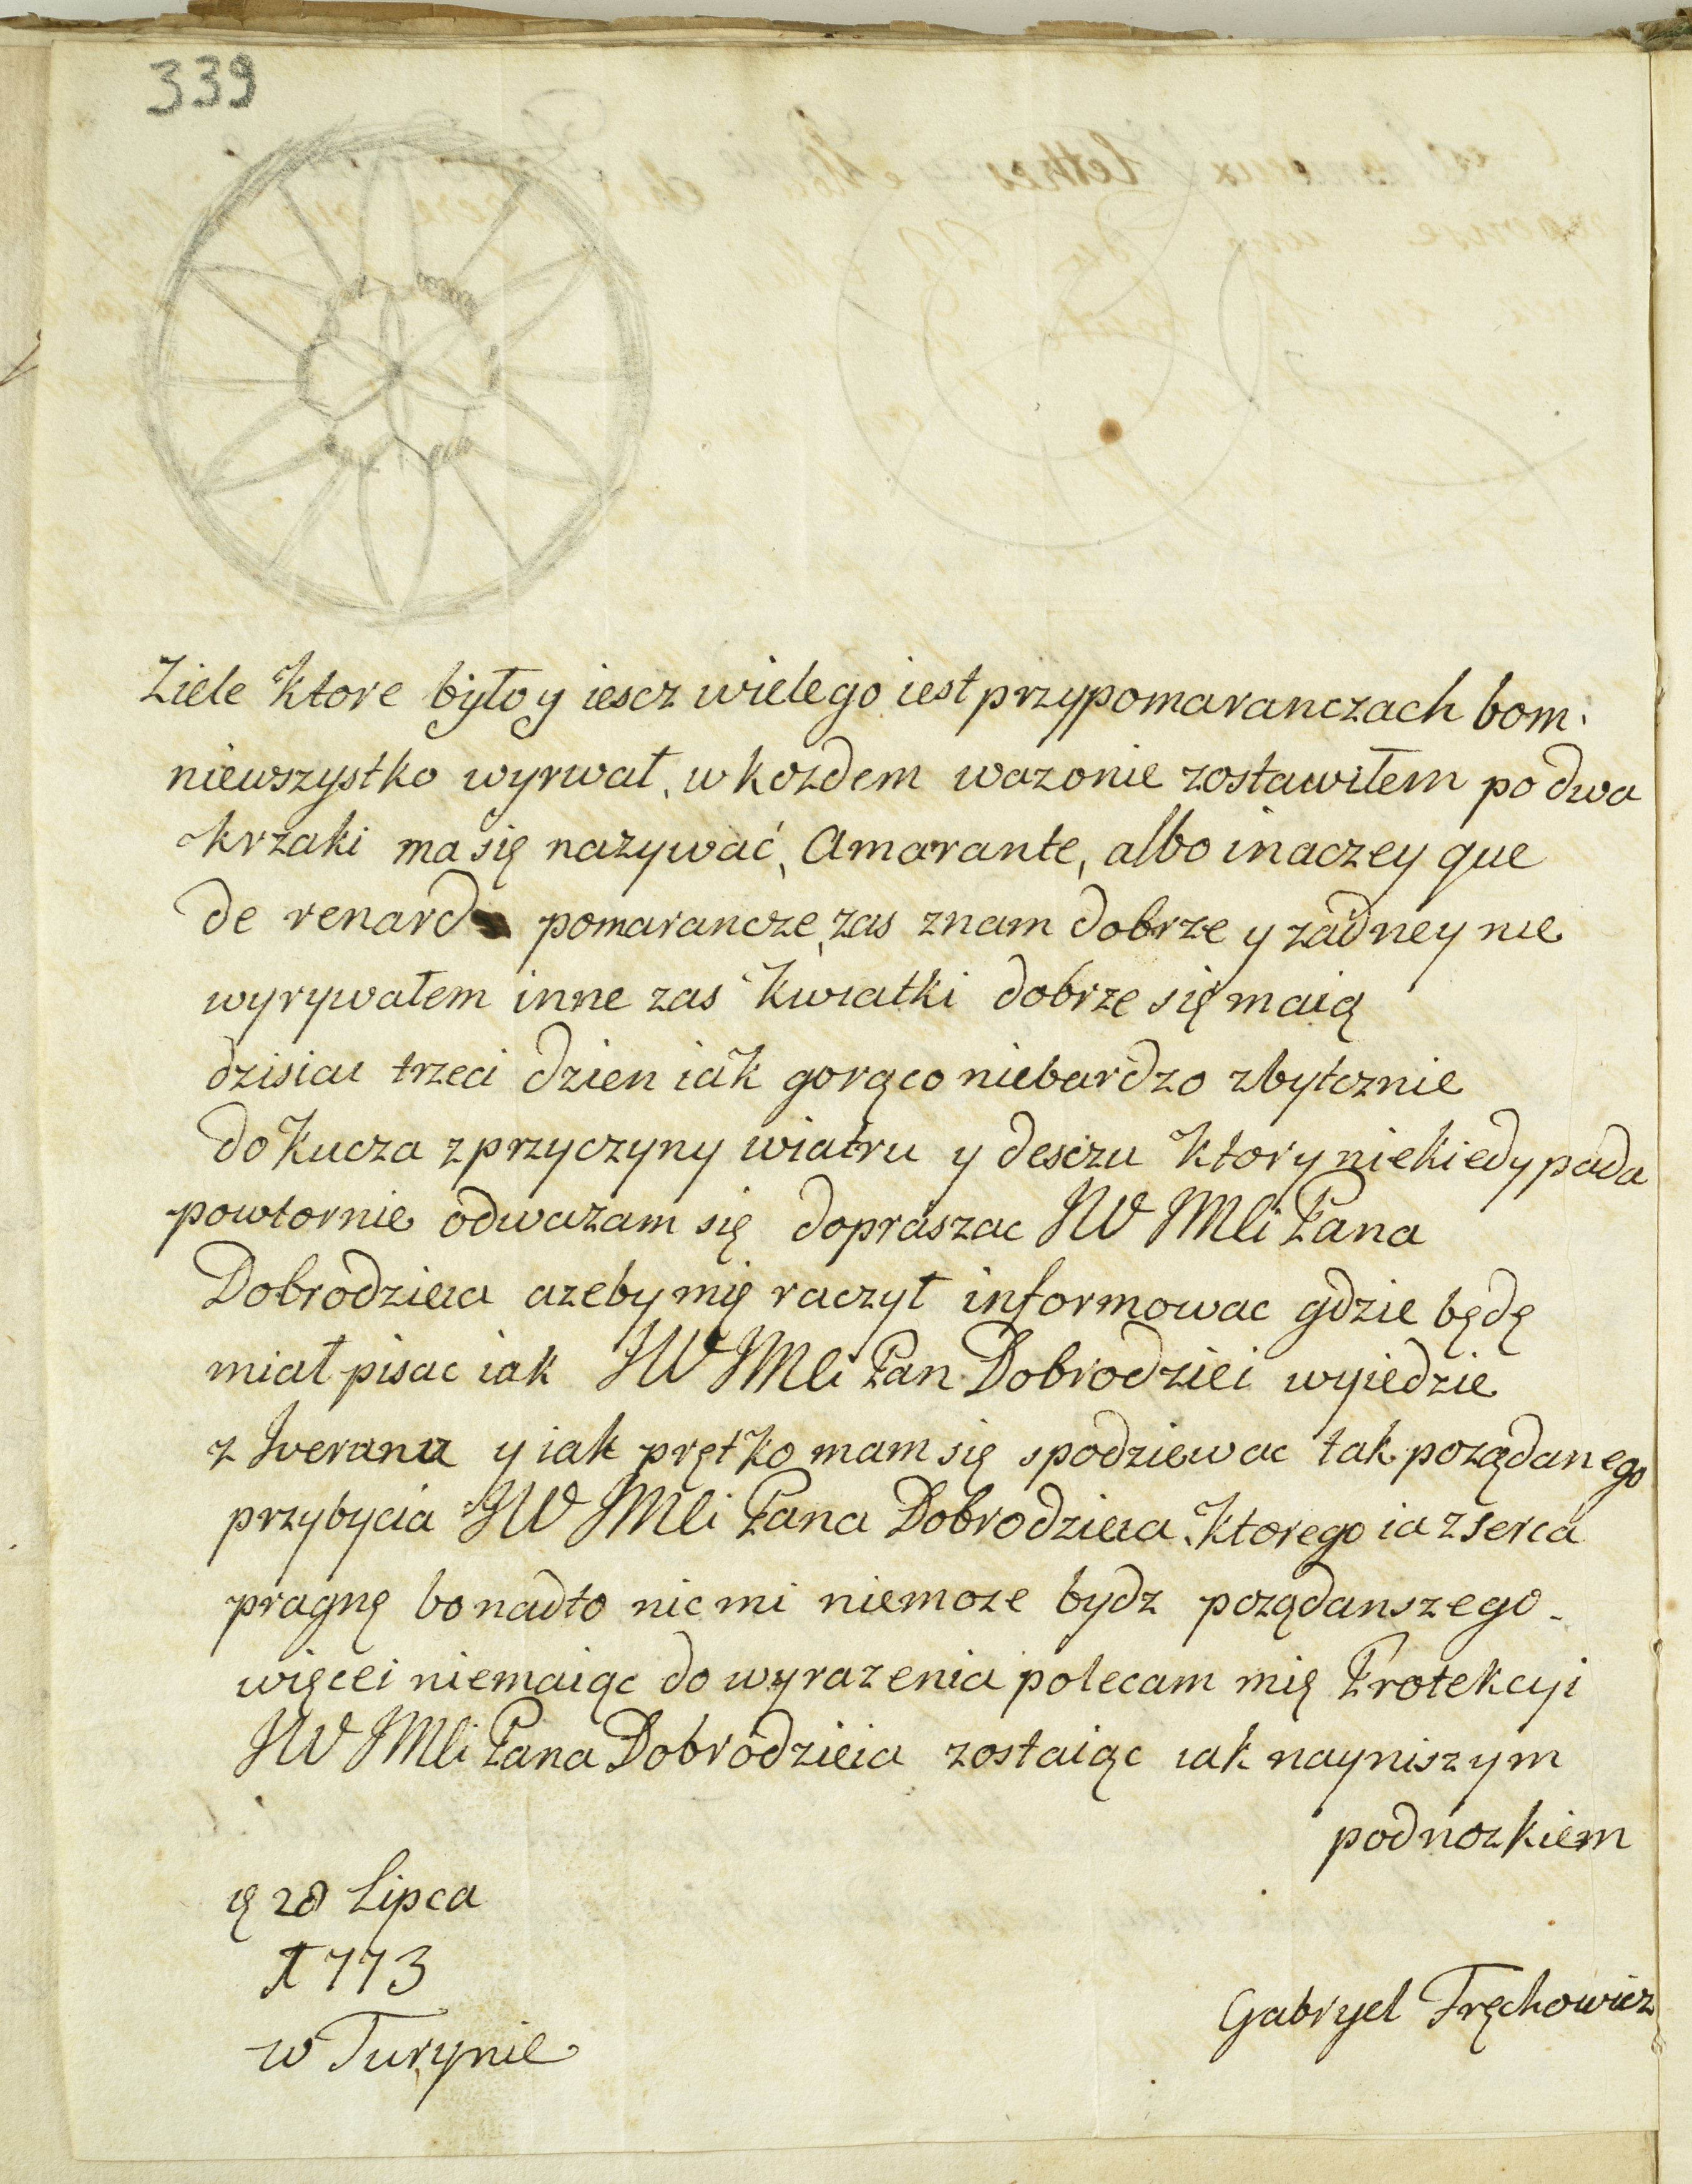 339
Ziele ktore było y iescz wielego iest przypomaranczach bom
niewszystko wyrwał, w kozdem wazonie zostawiłem po dwa
krzaki ma się nazywać, Amarante, albo inaczey que
de renard pomarancze, zas znam dobrze y zadney nie
wyrywałem inne zas kwiatki dobrze się maią
dzisiai trzeci dzien iak gorąco niebardzo zbytcznie
dokucza z przyczyny wiatru y desczu ktory niekiedy pada
powtornie odwazam się dopraszac JW JMCi Pana
Dobrodzieia azeby mię raczył informowac gdzie będę
miał pisac iak JW JMCi Pan Dobrodziei wyiedzie
z Iveranu y iak prętko mam się spodziewac tak poządanego
przybycia JW JMCi Pana Dobrodzieia. Ktorego ia z serca
pragnę bo nadto nic mi niemoze bydz poządanszego
więcei niemaiąc do wyrazenia polecam mię Protekcyi
JW JMCi Pana Dobrodzieia zostaiąc iak nayniszym
podnozkiem
28 Lipca
1773
w Turynie
Gabryel Fręchowicz